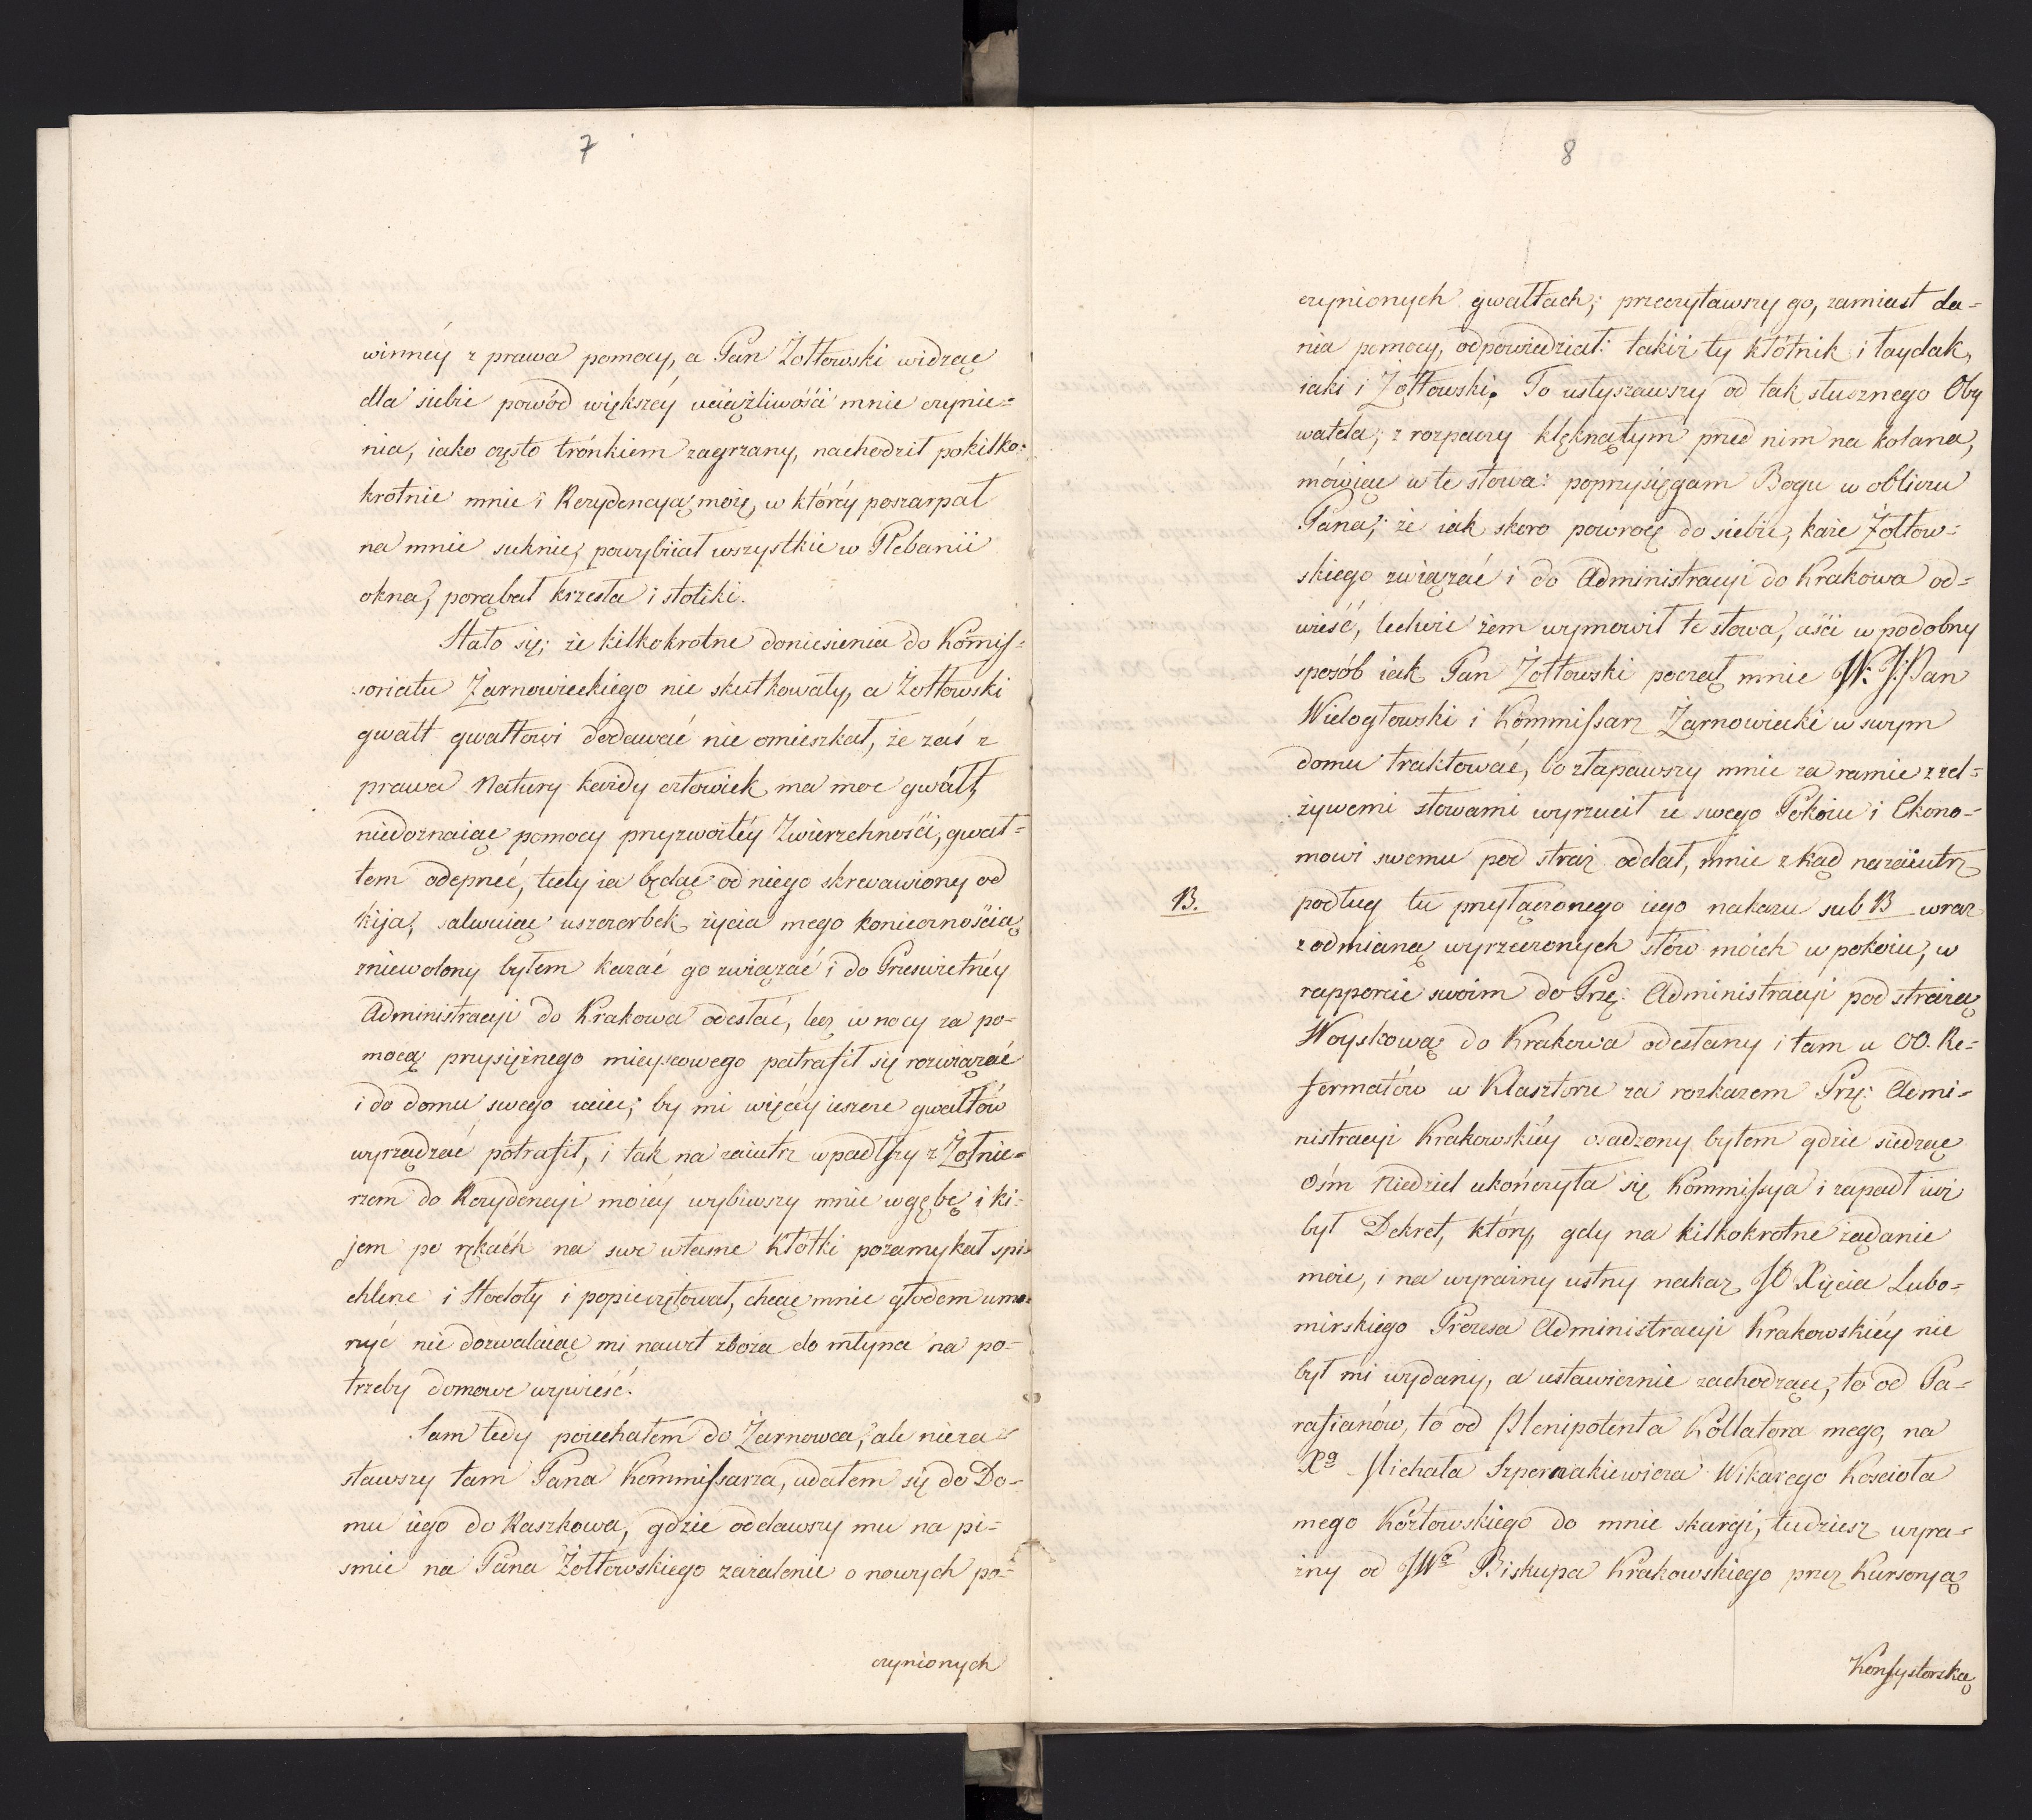 7
winnéy z prawa pomocy, a Pan Żołtowski widząc
dla siebie powód większéy uciążliwości mnie czynie-
nia, iako często trónkiem zagrzany, nachodził pokilko-
krotnie mnie i Rezydencyą moię, w któréy poszarpał
na mnie suknie, powybiiał wszystkie w Plebanii
okna, porąbał krzesła i stoliki.
Stało się; że kilkokrotne doniesienia do Komiſ-
soriatu Żarnowieckiego nie skutkowały, a Żołtowski
gwałt gwałtowi dodawać nie omieszkał, że zaś z
prawa Natury każdy człowiek ma moc gwałt,
niedoznaiąc pomocy przyzwoitéy Zwierzchności, gwał-
tem odeprzeć, tedy ia będąc od niego skrwawiony od
kija, salwuiąc uszczerbek życia mego koniecznością
zniewolony byłem kazać go związać i do Prześwietnéy
Administracyi do Krakowa odesłać, lecz w nocy za po-
mocą przysiężnego mieyscowego potrafił się rozwiązać
i do domu swego uciec; by mi więcéy ieszcze gwałtów
wyrządzać potrafił, i tak na zaiutrz wpadłſzy z Żołnie-
rzem do Rezydencyi moiéy wybiwszy mnie w gębę i ki-
jem po rękach na swe własne kłótki pozamykał spi-
chlerze i Stodoły i popieczętował, chcąc mnie głodem umo-
rzyć nie dozwalaiąc mi nawet zboża do młyna na po-
trzeby domowe wywieść.
Sam tedy poiechałem do Żarnowca, ale nieza-
stawszy tam Pana Kommiſsarza, udałem się do Do-
mu iego do Raszkowa, gdzie oddawszy mu na pi-
smie na Pana Żołtowskiego zażalenie o nowych po-
czynionych
8
czynionych gwałtach; przeczytawszy go, zamiast da-
nia pomocy, odpowiedział: takiś ty kłótnik i łaydak,
iaki i Żółtowski. To usłyszawszy od tak słusznego Oby
watela; z rozpaczy klęknąłym przed nim na kolana,
mówiąc w te słowa: poprzysięgam Bogu w obliczu
Pana; że iak skoro powrocę do siebie, każe Żołtow-
skiego związać i do Administracyi do Krakowa od-
wieść, ledwie żem wymowił te słowa, aści w podobny
sposób iak Pan Żołtowski począł mnie W. J. Pan
Wielogłowski i Kommiſsarz Żarnowiecki w swym
domu traktować, bo złapawszy mnie za ramie z zel-
żywemi słowami wyrzucił ze swego Pokoiu i Ekono-
mowi swemu pod straż oddał, mnie zkąd nazaiutrz
B.
podług tu przyłączonego iego nakazu sub B wraz
z odmianą wyrzeczonych słów moich w pokoiu, w
rapporcie swoim do Prz: Administracyi pod strażą
Woyskową do Krakowa odesłany i tam u OO. Re-
formatów w Klasztorze za rozkazem Prz: Admi-
nistracyi Krakowskiéy osadzony byłem gdzie siedząc
Ośm Niedziel ukończyła się Kommiſsya i zapadł iuż
był Dekret, który, gdy na kilkokrotne żądanie
moie, i na wyraźny ustny nakaz JO Xięcia Lubo-
mirskiego Prezesa Administracyi Krakowskiéy nie
był mi wydany, a ustawicznie zachodzące, to od Pa-
rafianów, to od Plenipotenta Kollatora mego, na
Xa Michała Szpernakiewicza Wikarego Kościoła
mego Kozłowskiego do mnie skargi, tudziesz wyra-
źny od JWo Biskupa Krakowskiego przez Kursoryą
Konſystorską